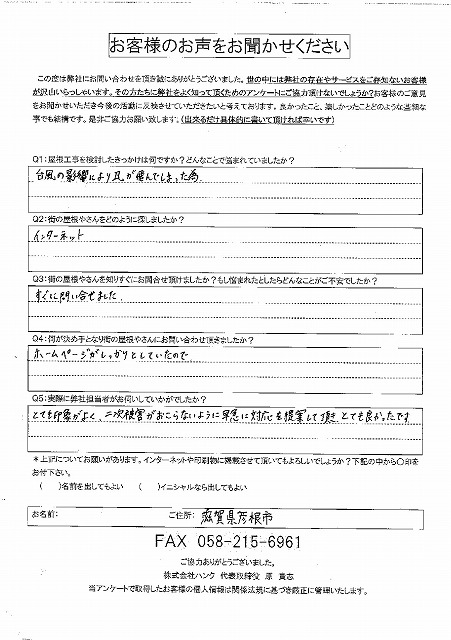 お客様のお声をお聞かせください
この度は弊社にお問い合わせを頂き誠にありがとうございました。世の中には弊社の存在やサービスをご存知ないお客様
が沢山いらっしゃいます。その方たちに弊社をよく知って頂くためのアンケートにご協力頂けないでしょうか?お客様のご意見
をお聞かせいただき今後の活動に反映させていただきたいと考えております。良かったこと、嬉しかったことどのような些細な
事でも結構です。是非ご協力お願い致します。(出来るだけ具体的に書いて頂ければ幸いです)
Q1:屋根工事を検討したきっかけは何ですか?どんなことで悩まれていましたか?
台風の影響により瓦が飛んでしまった為
Q2:街の屋根やさんをどのように探しましたか?
インターネット
Q3:街の屋根やさんを知りすぐにお問合せ頂けましたか?もし悩まれたとしたらどんなことがご不安でしたか?
すぐに問い合せました
Q4:何が決め手となり街の屋根やさんにお問い合わせ頂きましたか?
ホームページがしっかりとしていたので
Q5:実際に弊社担当者がお伺いしていかがでしたか?
とても印象がよく、二次被害がおこらないように早急に対応を提案して頂きとても良かったです
*上記についてお願いがあります。インターネットや印刷物に掲載させて頂いてもよろしいでしょうか?下記の中から〇印を
お付下さい。
( )名前を出してもよい ( )イニシャルなら出してもよい
お名前: ご住所: 滋賀県彦根市
FAX 058-215-6961
ご協力ありがとうございました。
株式会社ハンク 代表取締役 原 貴志
当アンケートで取得したお客様の個人情報は関係法規に基づき厳正に管理いたします。